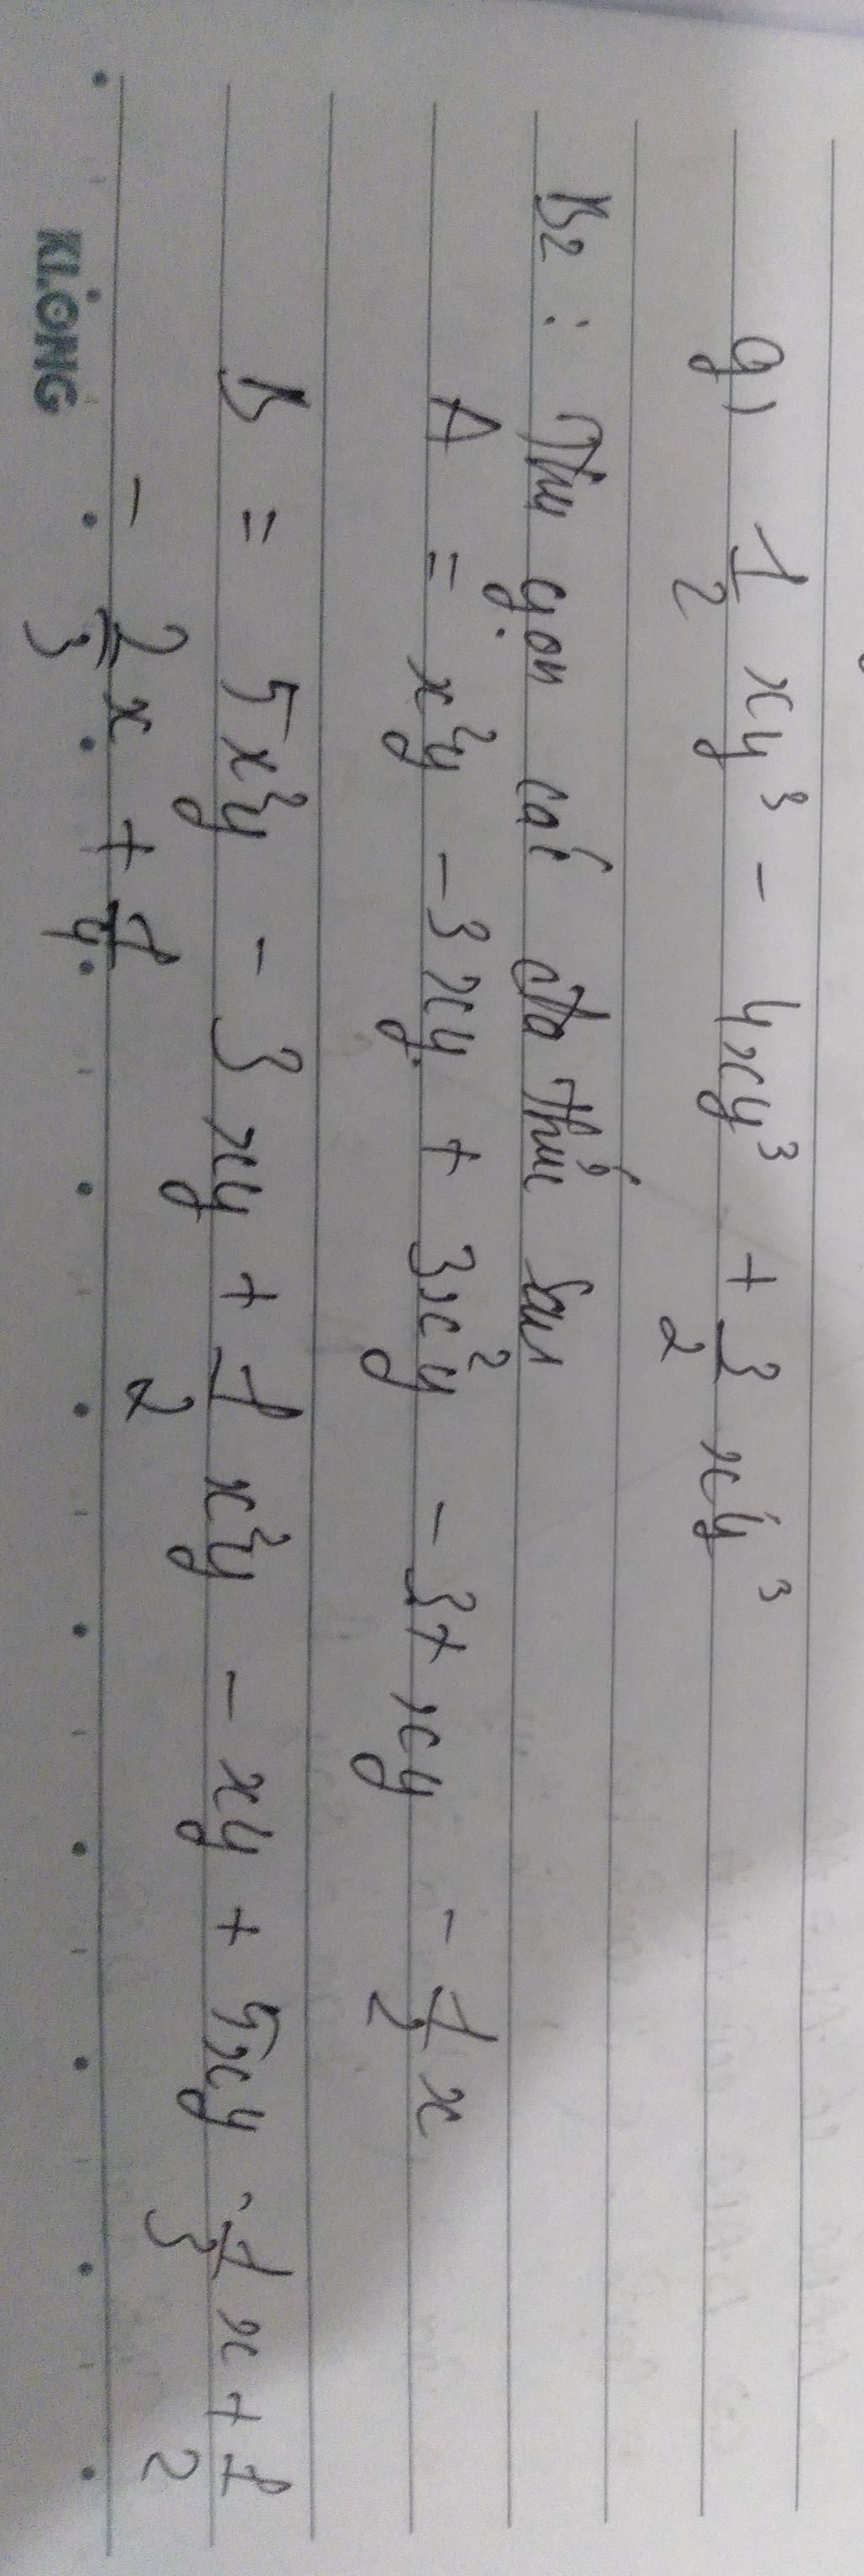 g) 1/2 xy³ - 4xy³ + 3/2 xy³
B2 : Thu gọn các đa thức sau
A = x²y - 3xy + 3x²y - 3 + xy - 1/2 x
B = 5x²y - 3xy + 1/2 x²y - xy + 5xy - 1/3 x + 1/2
- 2/3 x + 1/4
KLONG